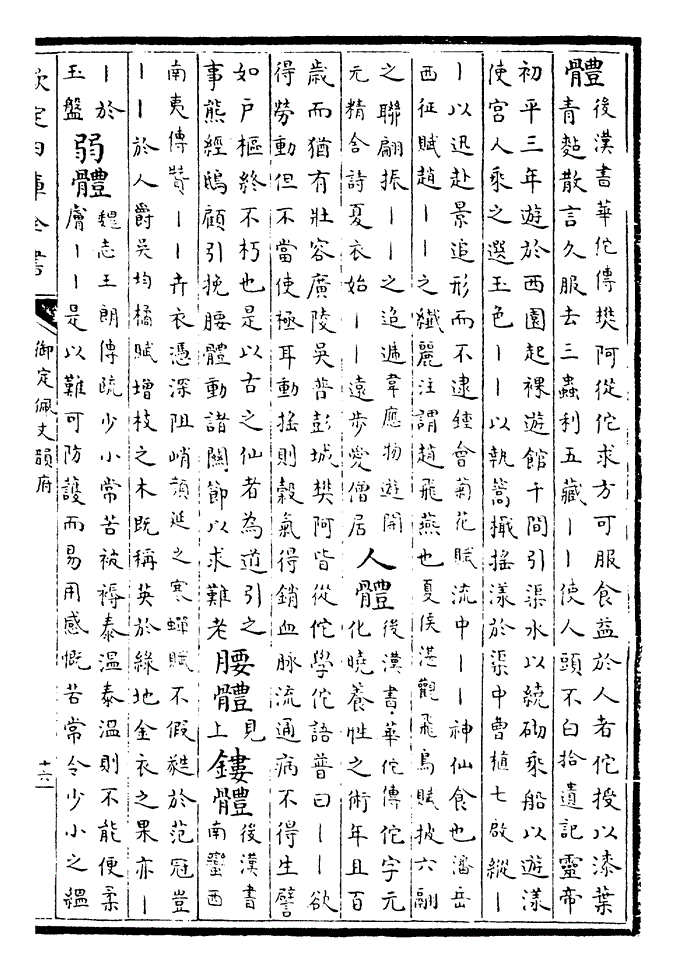 體
後漢書華佗傳樊阿從佗求方可服食益於人者佗授以漆葉
青黏散言久服去三蟲利五藏丨丨使人頭不白拾遺記靈帝
初平三年遊於西園起裸遊館千間引渠水以繞砌乘船以遊漾
使宮人乘之選玉色丨丨以執篙檝搖漾於渠中曹植七啟縱丨
丨以迅赴景追形而不逮鍾會菊花賦流中丨丨神仙食也潘岳
西征賦趙丨丨之纖麗注謂趙飛燕也夏侯湛觀飛鳥賦披六翮
之聯翩振丨丨之迢遞韋應物遊開
元精舍詩夏衣始丨丨遠步愛僧居
人體
後漢書華佗傳佗字元
化曉養性之術年且百
歲而猶有壯容廣陵吳普彭城樊阿皆從佗學佗語普曰丨丨欲
得勞動但不當使極耳動搖則穀氣得銷血脉流通病不得生譬
如戶樞終不朽也是以古之仙者為道引之
事熊經鴟顧引挽腰體動諸關節以求難老
腰體
見
上
鏤體
後漢書
南蠻西
南夷傳贊丨丨卉衣憑深阻峭顏延之寒蟬賦不假緌於范冠豈
丨丨於人爵吳均橘賦增枝之木既稱英於綠地金衣之果亦丨
丨於
玉盤
弱體
魏志王朗傳疏少小常苦被褥泰溫泰溫則不能便柔
膚丨丨是以難可防護而易用感慨若常令少小之縕
欽定四庫全書
御定佩文韻府
十六